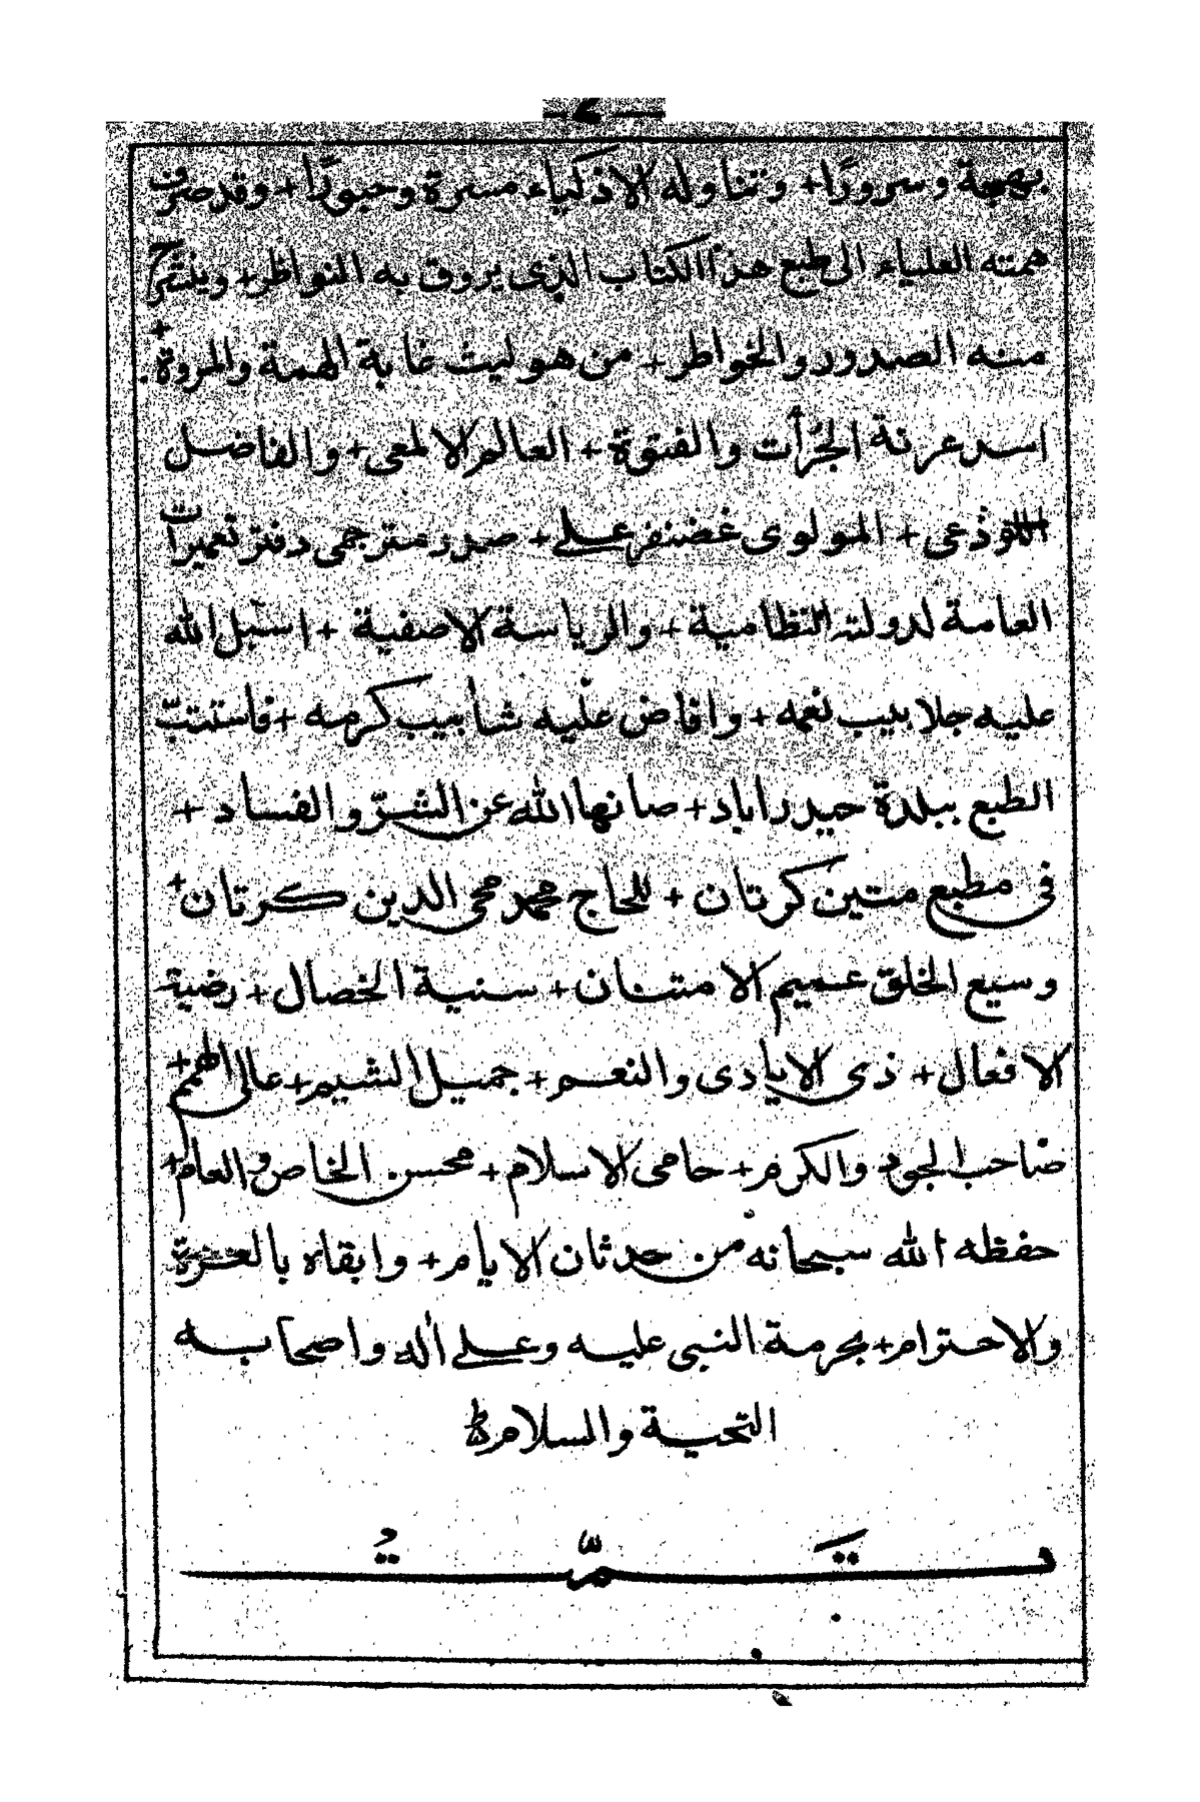 بهجة وسرورًا+ وتناوله الاذكياء مسرة وحبورًا+ وقد صرف
همته العلياء الى طبع هذا الكتاب الذى يروق به النواظر+ وينشرح
منه الصدور والخواطر+ من هو ليث غابة الهمة والمروة+
اسد عرنة الجُرأت والفتوة+ العالم الالمعى+ والفاضل
اللوذعى+ المولوى غضنفر على+ صدر مترجمى دفتر تعميرات
العامة لدولته النظامية+ والرياسة الاصفية+ اسبل الله
عليه جلابيب نعمه+ وافاض عليه شأبيب كرمه+ فاستتبّ
الطبع ببلدة حيدراباد+ صانها الله عن الشرّ والفساد+
فى مطبع متين كرتان+ للحاج محمد محى الدين كرتان+
وسيع الخلق عميم الامتنان+ سنية الخصال+ رضية
الافعال+ ذى الايادى والنعم+ جميل الشيم+ عالى الهمم+
صاحب الجود والكرم+ حامى الاسلام+ محسن الخاص والعام+
حفظه الله سبحانه من حدثان الايام+ وابقاه بالعزة
والاحترام+ بحرمة النبى عليه وعلى أله واصحابه
التحية والسلام
تَمّتُ